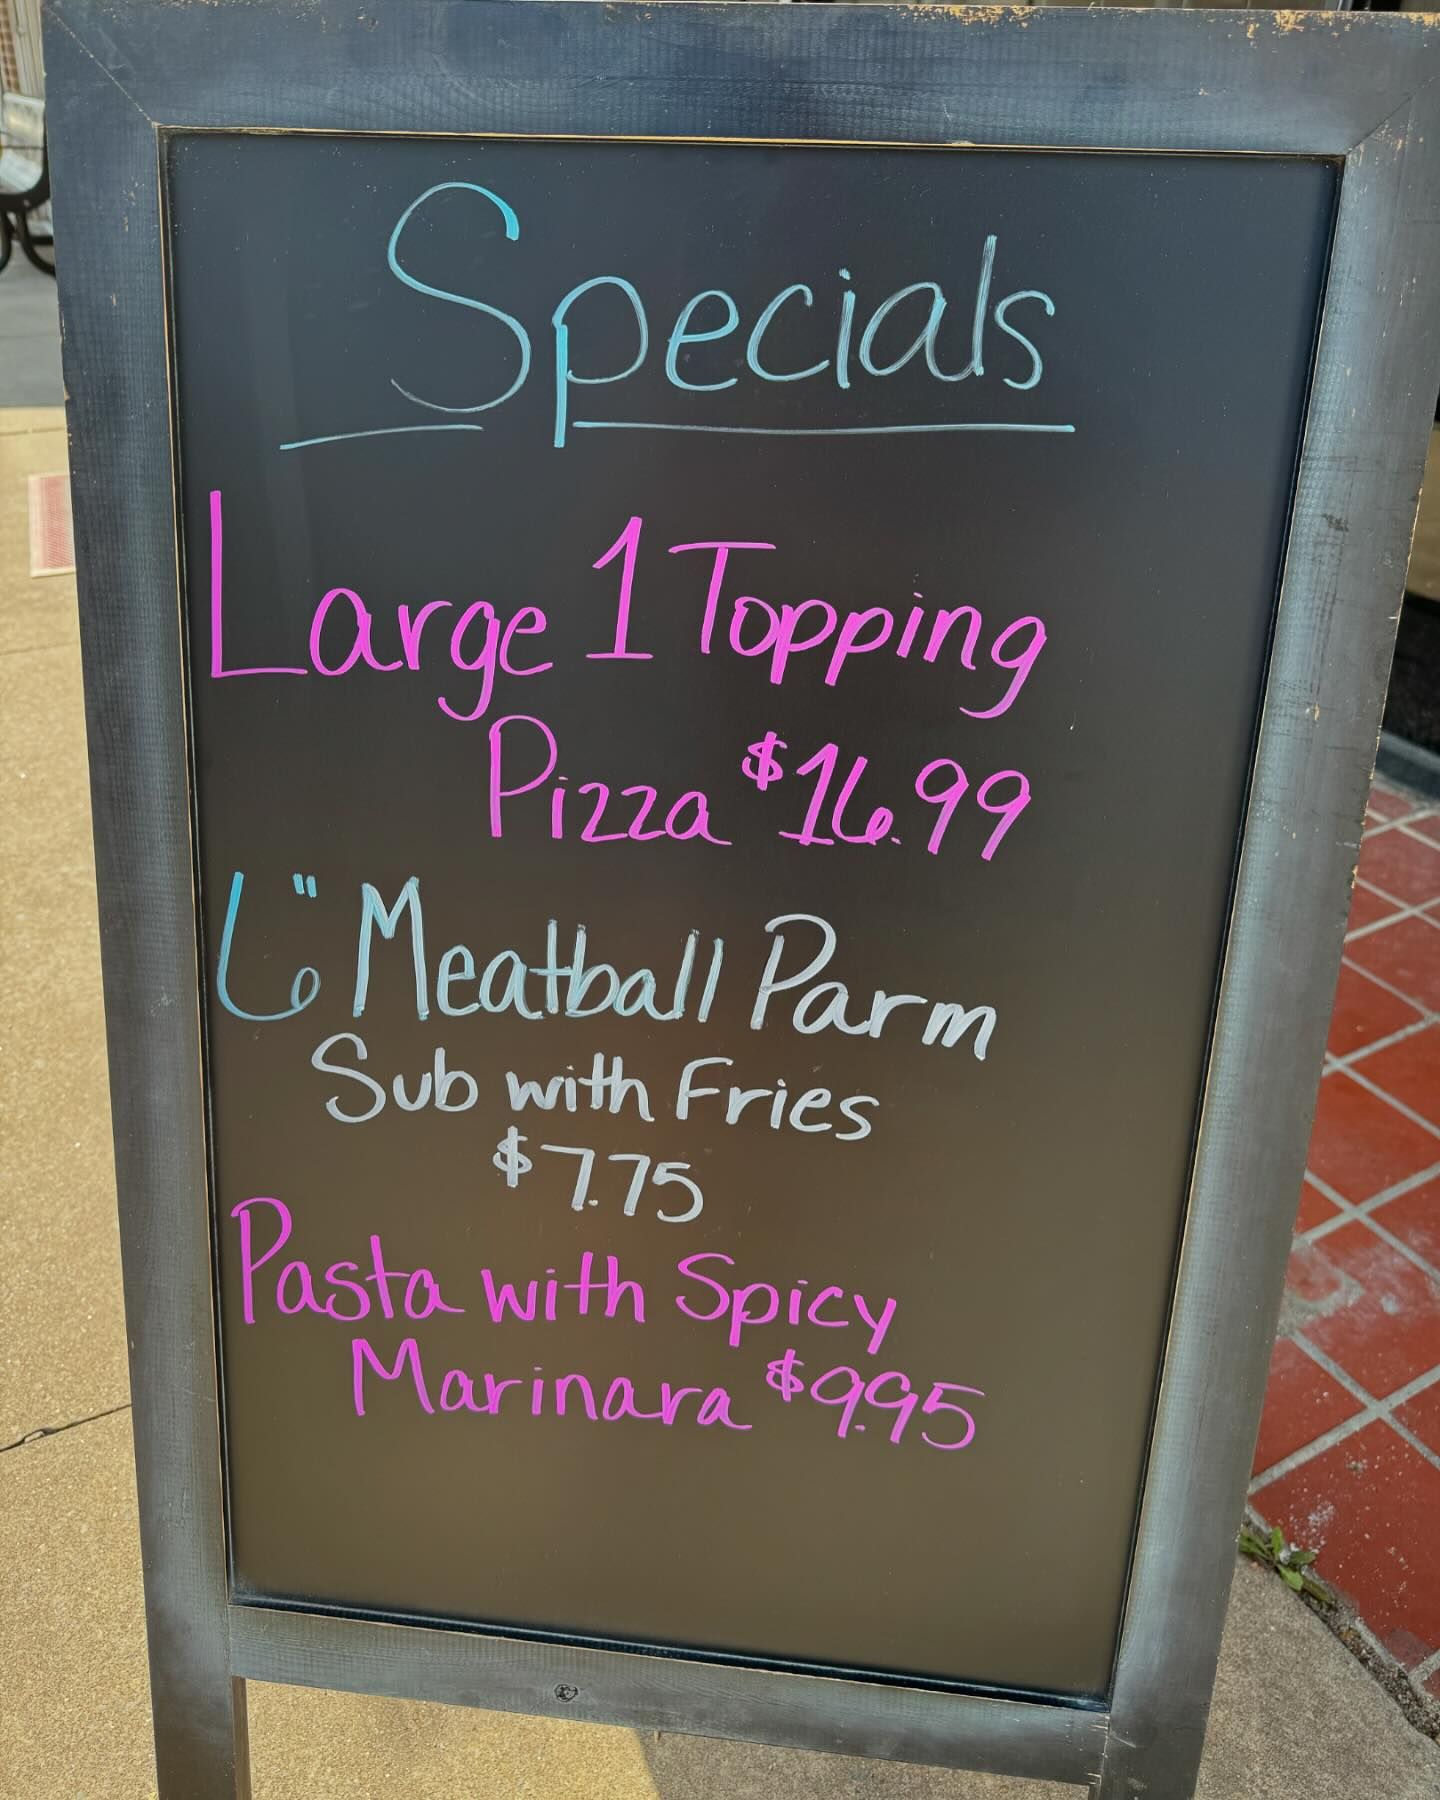 Specials
Large 1 Topping
Pizza $16.99
6" Meatball Parm
Sub with Fries
$7.75
Pasta with Spicy
Marinara $9.95